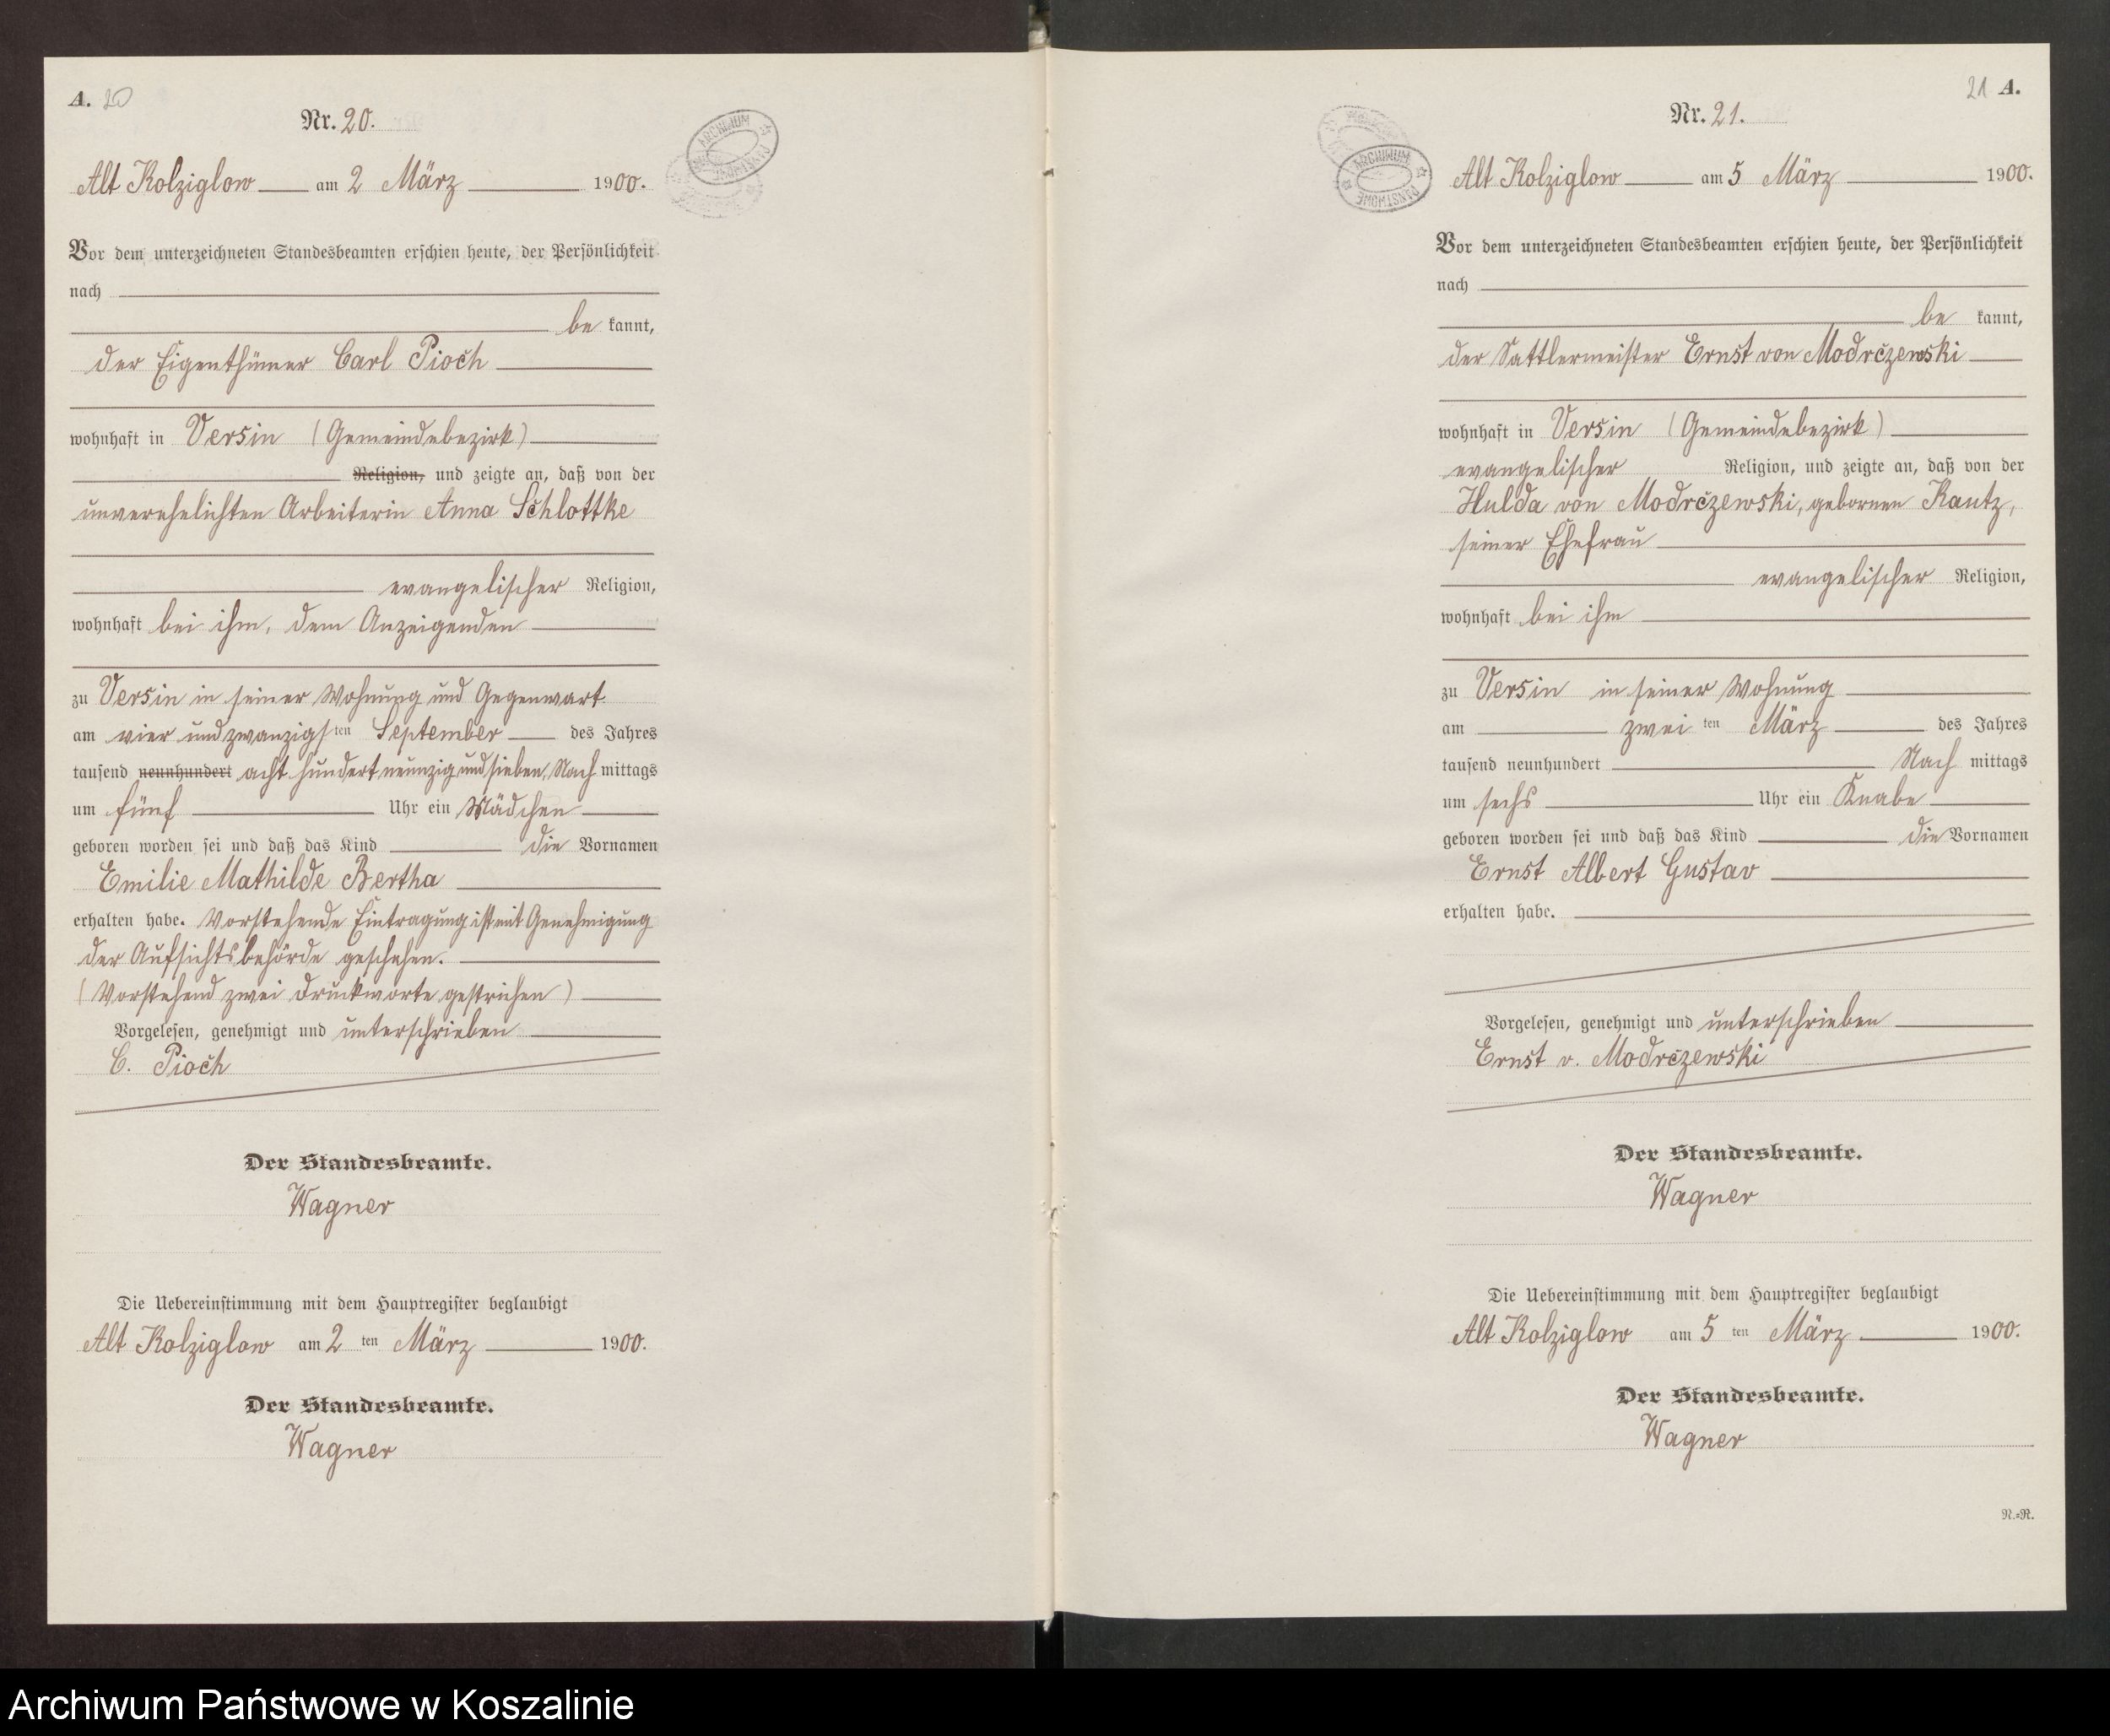 A. 20
Nr. 20.
Alt Kolziglow am 2 März 1900.
Vor dem unterzeichneten Standesbeamten erschien heute, der Persönlichkeit
nach
be kannt,
der Eigenthümer Carl Pioch
wohnhaft in Versin (Gemeindebezirk)
Religion, und zeigte an, daß von der
unverehelichten Arbeiterin Anna Schlottke
evangelischer Religion,
wohnhaft bei ihm, dem Anzeigenden
zu Versin in seiner Wohnung und Gegenwart
am vier und zwanzigsten September des Jahres
tausend neunhundert acht hundert neunzig und sieben, Nach mittags
um fünf Uhr ein Mädchen
geboren worden sei und daß das Kind die Vornamen
Emilie Mathilde Bertha
erhalten habe. Vorstehende Eintragung ist mit Genehmigung
der Aufsichtsbehörde geschehen.
(Vorstehend zwei Druckworte gestrichen)
Vorgelesen, genehmigt und unterschrieben
C. Pioch
Der Standesbeamte.
Wagner
Die Uebereinstimmung mit dem Hauptregister beglaubigt
Alt Kolziglow am 2 ten März 1900.
Der Standesbeamte.
Wagner
ARCHIWUM PAŃSTWOWE
21 A.
Nr. 21.
ARCHIWUM PAŃSTWOWE
Alt Kolziglow am 5 März 1900.
Vor dem unterzeichneten Standesbeamten erschien heute, der Persönlichkeit
nach
be kannt,
der Sattlermeister Ernst von Modrczewski
wohnhaft in Versin (Gemeindebezirk)
evangelischer Religion, und zeigte an, daß von der
Hulda von Modrczewski, gebornen Kautz,
seiner Ehefrau
evangelischer Religion,
wohnhaft bei ihm
zu Versin in seiner Wohnung
am zwei ten März des Jahres
tausend neunhundert Nach mittags
um sechs Uhr ein Knabe
geboren worden sei und daß das Kind die Vornamen
Ernst Albert Gustav
erhalten habe.
Vorgelesen, genehmigt und unterschrieben
Ernst v. Modrczewski
Der Standesbeamte.
Wagner
Die Uebereinstimmung mit dem Hauptregister beglaubigt
Alt Kolziglow am 5 ten März 1900.
Der Standesbeamte.
Wagner
N.=R.
Archiwum Państwowe w Koszalinie